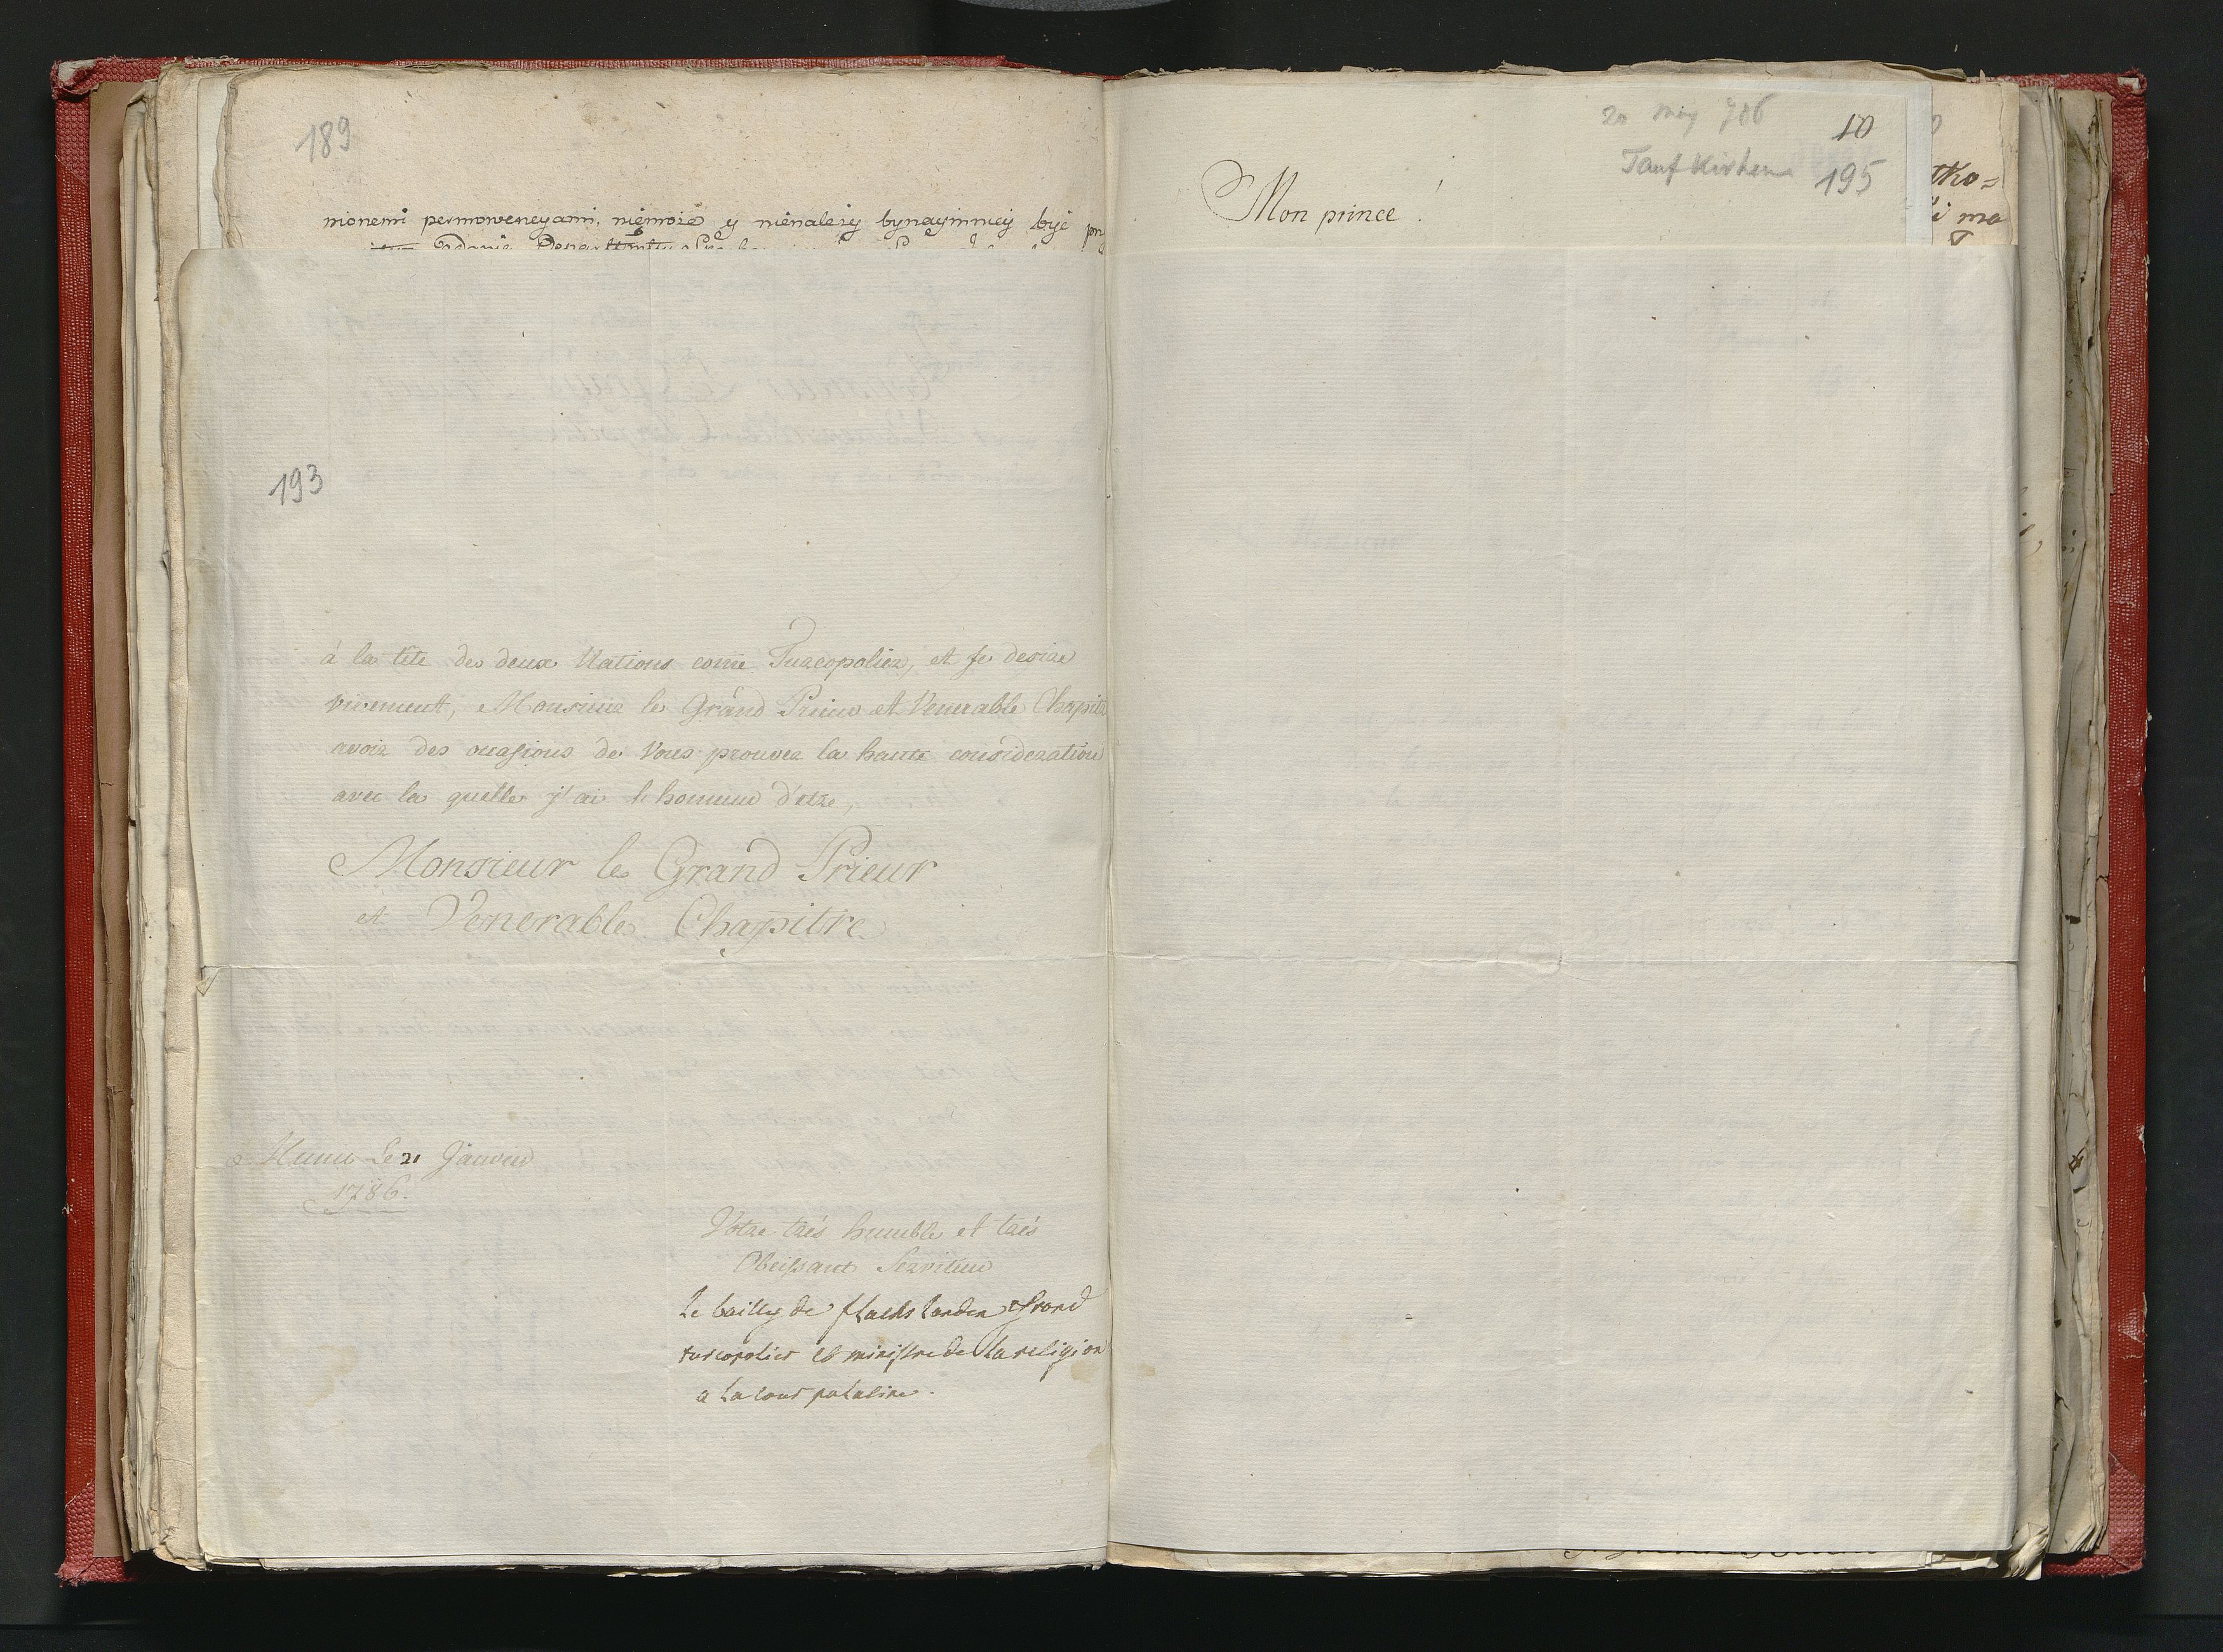 189
nionemi permoweneyami, niemoże y nienależy bynaymniey być
193
à la tête des deux Nations come Turcopolier, et je desire
vivement, Monsieur le Grand Prieur et Venerable Chapitre
avoir des occasions de Vous prouver la haute consideration
avec la quelle j'ai l'honneur d'etre,
Monsieur le Grand Prieur
et Venerable Chapitre
a Munic Le 21 Janvier
1786.
Votre trés humble et trés
Obeissant Serviteur
Le bailly de flachslanden Grand
turcopolier et ministre de la religion
a la cour palatine.
20 May 786
10
Taufkirchen
195
Mon prince!
tko=
ma